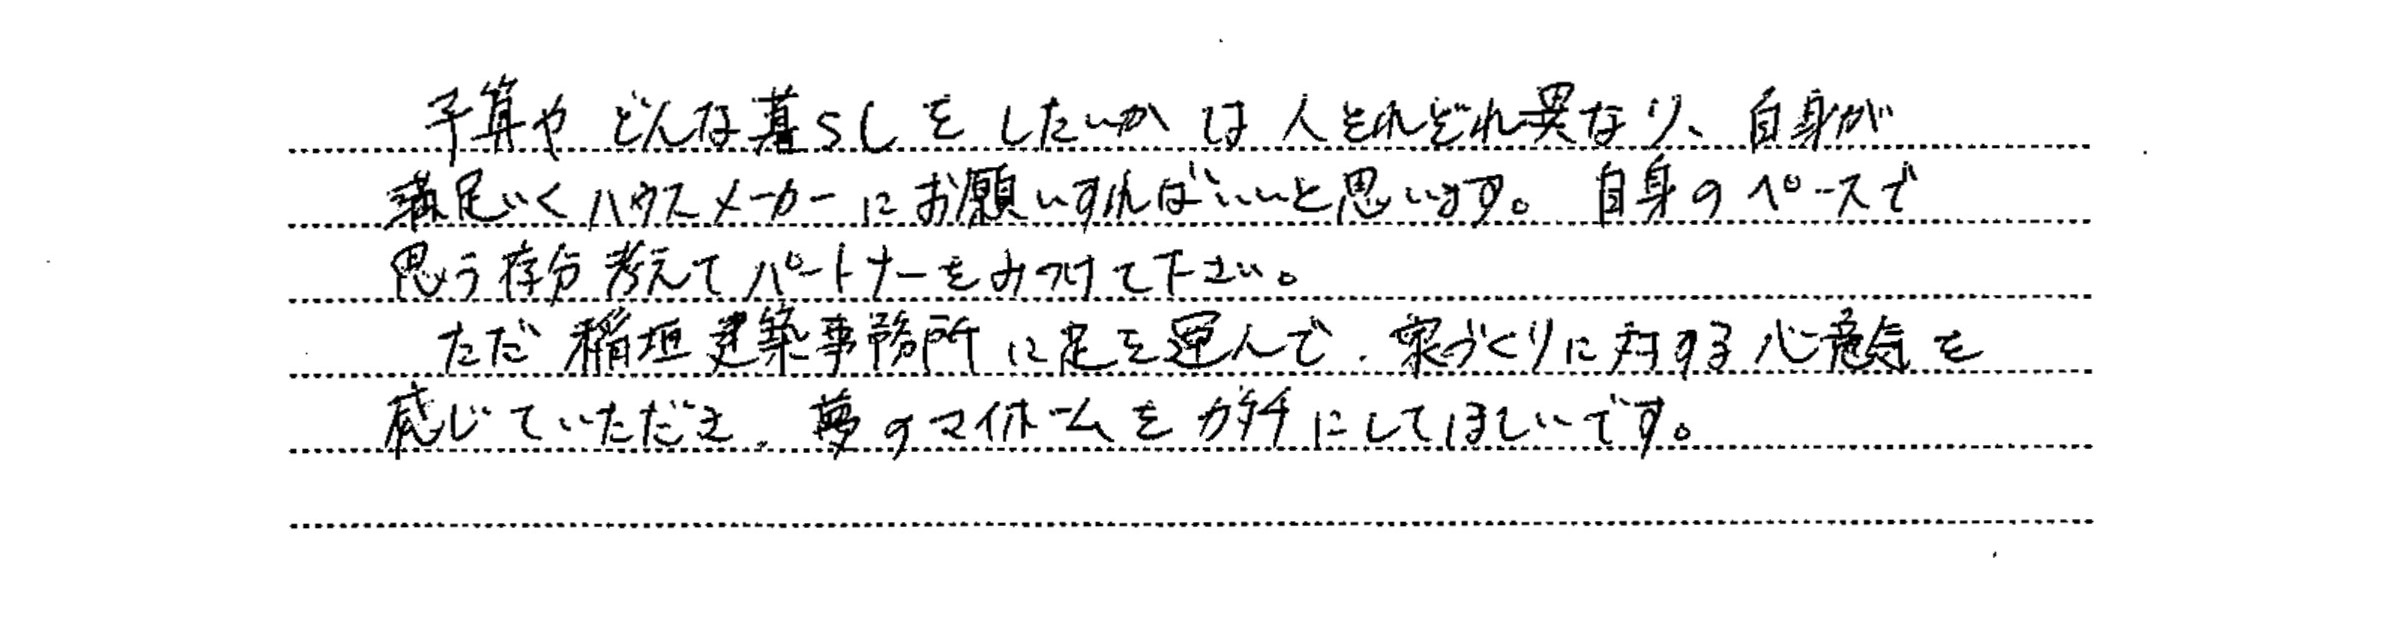 予算や どんな暮らしを したいか は 人それぞれ異なり、自身が
満足いく ハウスメーカーに お願いすればいいと思います。 自身の ペースで
思う存分 考えて パートナーをみつけて下さい。
ただ 稲垣 建築事務所 に足を運んで、家づくりに対する心意気を
感じていただき、夢のマイホームを カタチにしてほしいです。